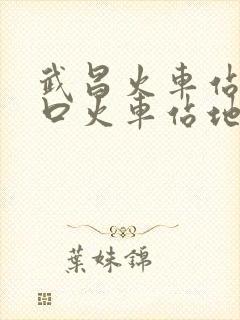 武昌火車佔
口火車佔地
葉妹錦